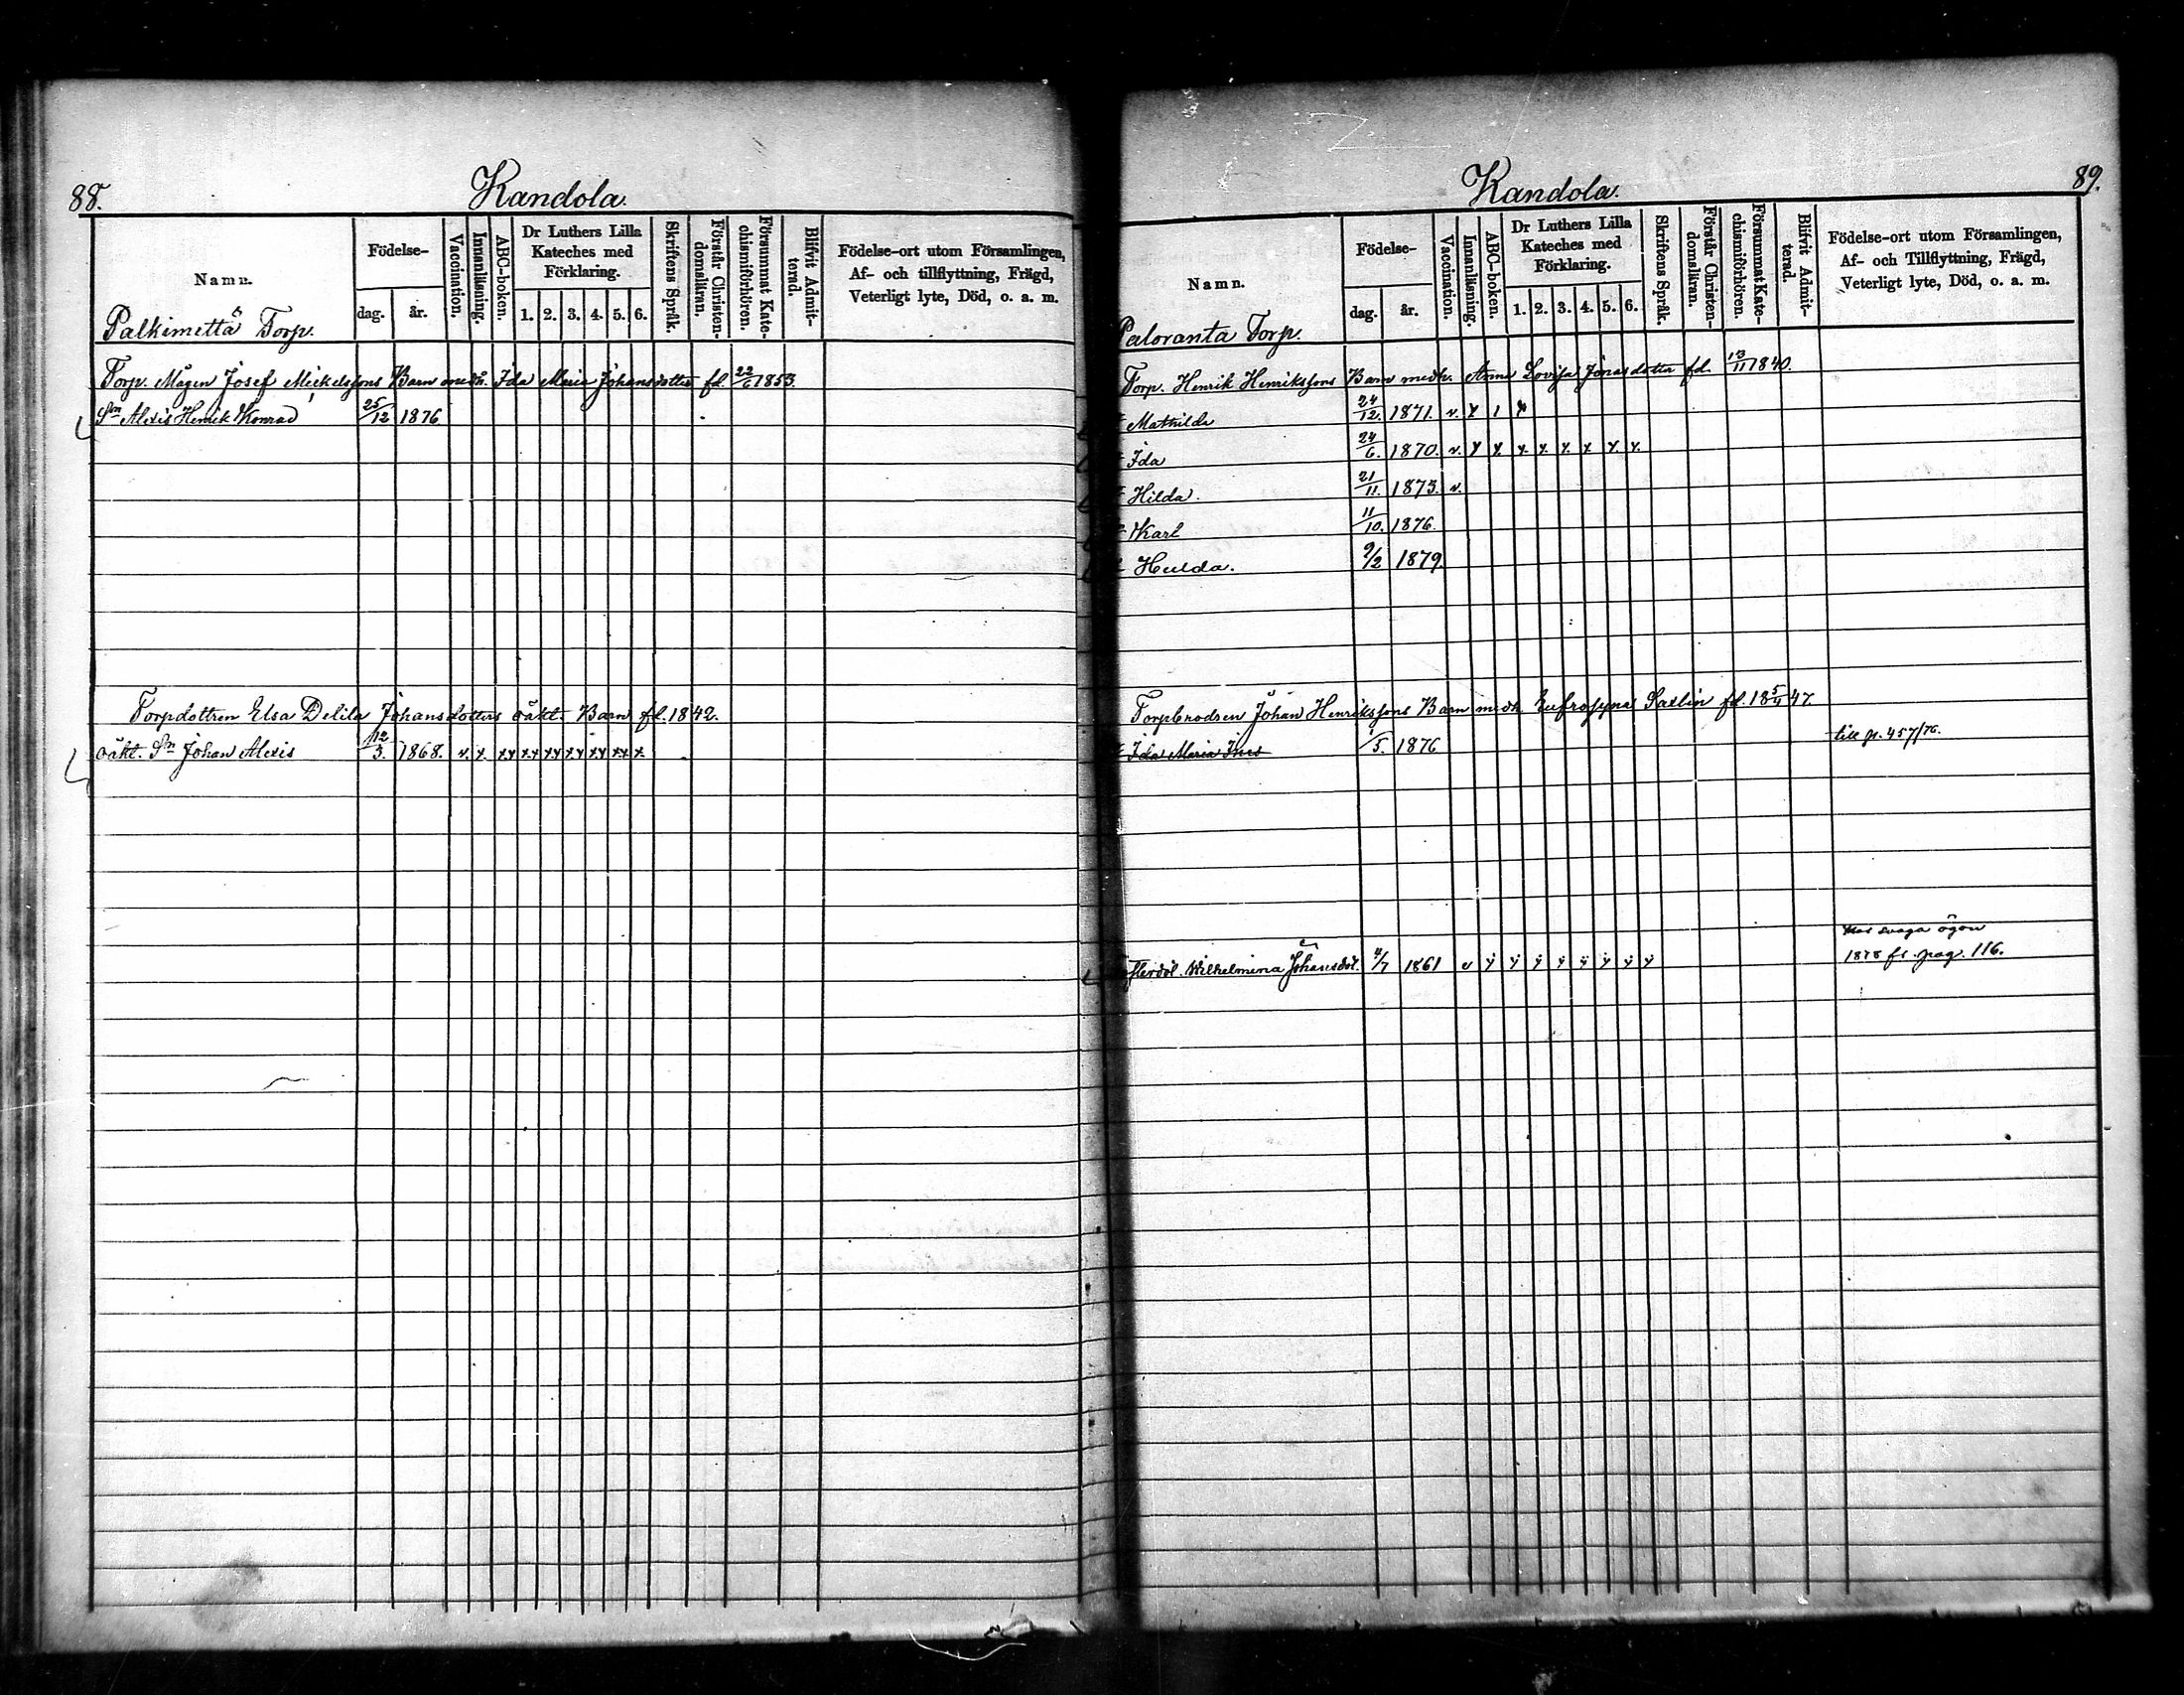 88.
Kandola.
Namn.
Födelse-
dag. år.
Vaccination.
Innanläsning.
ABC-boken.
Dr Luthers Lilla
Kateches med
Förklaring.
1. 2. 3. 4. 5. 6.
Skriftens Språk.
Förstår Christen-
domsläran.
Försummat Kate-
chismiförhören.
Blifvit Admit-
terad.
Födelse-ort utom Församlingen,
Af- och tillflyttning, Frägd,
Veterligt lyte, Död, o. a. m.
Palkimettä Torp.
Torp. Mågen Josef Mickelssons Barn medh. Ida Maria Johansdotter fd. 22/6 1853.
Sn Alexis Henrik Konrad 25/12 1876
Torpdottren Elsa Delila Johansdotters oäkt. Barn fd. 1842.
oäkt. Sn Johan Alexis 12/3. 1868. v. x. xx xx xx xx xx xx x.
89.
Kandola.
Namn.
Födelse-
dag. år.
Vaccination.
Innanläsning.
ABC-boken.
Dr Luthers Lilla
Kateches med
Förklaring.
1. 2. 3. 4. 5. 6.
Skriftens Språk.
Förstår Christen-
domsläran.
Försummat Kate-
chismiförhören.
Blifvit Admit-
terad.
Födelse-ort utom Församlingen,
Af- och Tillflyttning, Frägd,
Veterligt lyte, Död, o. a. m.
Paloranta Torp.
Torp. Henrik Henrikssons Barn medh. Anna Lovisa Jonasdotter fd. 13/11 1840.
Mathilda 24/12. 1871. v. x 1 x
Ida 24/6. 1870. v. x x. x. x. x. x x. x.
Hilda. 21/11. 1873. v.
Karl 11/10. 1876.
Hulda. 9/2 1879.
Torpbrodren Johan Henrikssons Barn medh Eufrosyna Saxlin fd. 18 5/4 47.
Ida Maria Ines 1/5. 1876 till p. 457/76.
har svaga ögon
Wilhelmina Johansdot. 4/7 1861 v x x x x x x x x 1878 fr. pag. 116.